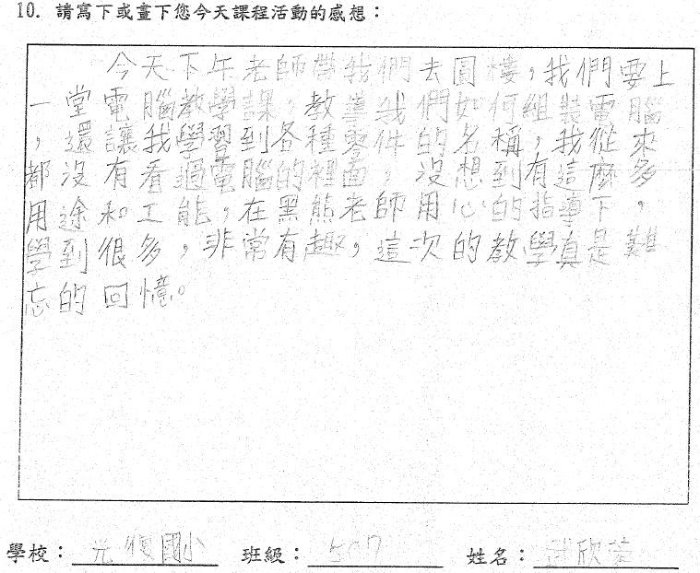 10. 請寫下或畫下您今天課程活動的感想：
今天下午老師帶我們去圖樓，我們要上
一堂電腦教學課，教導我們如何組裝電腦
，還讓我學習到各種零件的名稱，我從來
都沒有看過電腦的裡面，沒想到有這麼多
用途和工能，在黑熊老師用心的指導下，
學到很多，非常有趣，這次的教學真是難
忘的回憶。
學校：光復國小 班級：507 姓名：欣